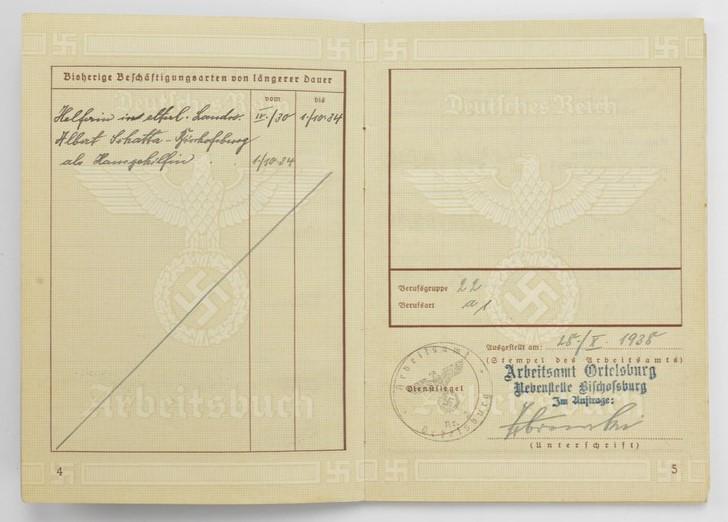 Bisherige Beschäftigungsarten von längerer Dauer
vom bis
Helferin in elterl. Landw. IV./30 1/10.34
Albert Schatta - Bischofsburg
als Hausgehilfin 1/10.34
Deutsches Reich
Arbeitsbuch
4
Deutsches Reich
Berufsgruppe 22
Berufsart a 1
Ausgestellt am: 28./X. 1935
(Stempel des Arbeitsamts)
Arbeitsamt Ortelsburg
Nebenstelle Bischofsburg
Im Auftrage:
(Unterschrift)
Arbeitsamt
Dienstsiegel
Nr.
Ortelsburg
Arbeitsbuch
5